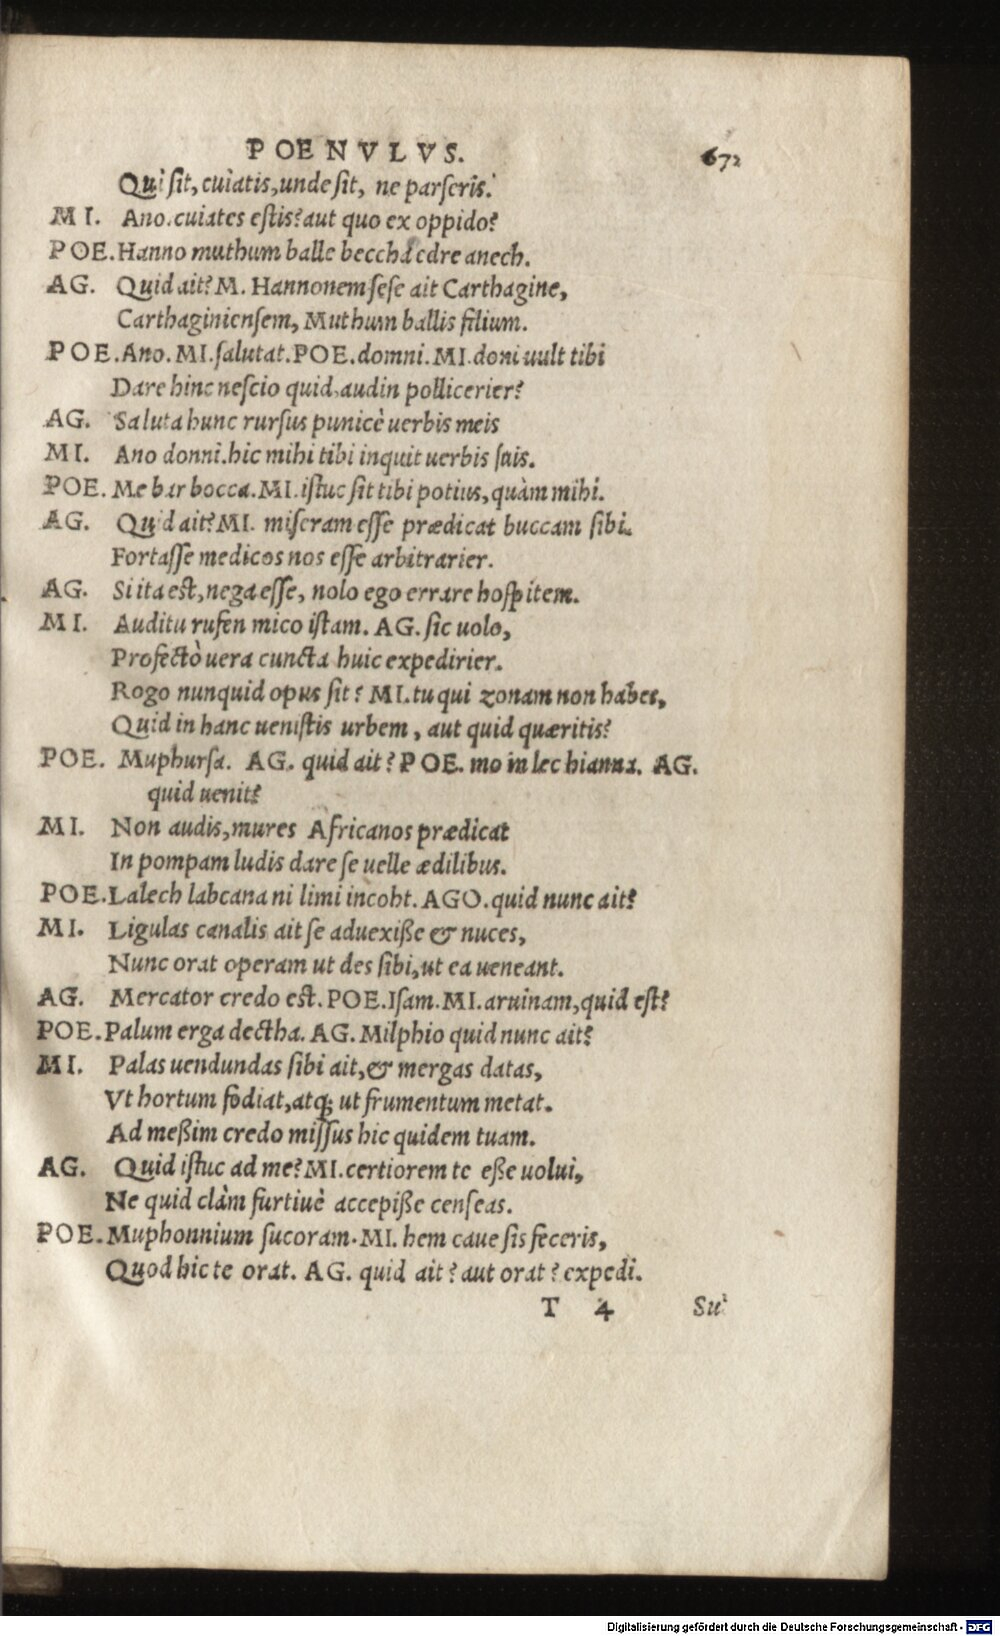 POENVLVS. 672
Qui sit, cuiatis, unde sit, ne parseris.
MI. Ano. cuiates estis? aut quo ex oppido?
POE. Hanno muthum balle becchaedre anech.
AG. Quid ait? M. Hannonem sese ait Carthagine,
Carthaginiensem, Muthum ballis filium.
POE. Ano. MI. salutat. POE. domni. MI. doni uult tibi
Dare hinc nescio quid, audin pollicerier?
AG. Saluta hunc rursus punicè uerbis meis
MI. Ano donni. hic mihi tibi inquit uerbis suis.
POE. Me bar bocca. MI. istuc sit tibi potius, quàm mihi.
AG. Quid ait? MI. miseram esse prædicat buccam sibi.
Fortasse medicos nos esse arbitrarier.
AG. Si ita est, nega esse, nolo ego errare hospitem.
MI. Auditu rufen mico istam. AG. sic uolo,
Profectò uera cuncta huic expedirier.
Rogo nunquid opus sit? MI. tu qui zonam non habes,
Quid in hanc uenistis urbem, aut quid quæritis?
POE. Muphursa. AG. quid ait? POE. mo in lec hianna. AG.
quid uenit?
MI. Non audis, mures Africanos prædicat
In pompam ludis dare se uelle ædilibus.
POE. Lalech labcana ni limi incoht. AGO. quid nunc ait?
MI. Ligulas canalis ait se aduexiße & nuces,
Nunc orat operam ut des sibi, ut ea ueneant.
AG. Mercator credo est. POE. Isam. MI. aruinam, quid est?
POE. Palum erga dectha. AG. Milphio quid nunc ait?
MI. Palas uendundas sibi ait, & mergas datas,
Vt hortum fodiat, atq; ut frumentum metat.
Ad meßim credo missus hic quidem tuam.
AG. Quid istuc ad me? MI. certiorem te eße uolui,
Ne quid clàm furtiuè accepiße censeas.
POE. Muphonnium sucoram. MI. hem caue sis feceris,
Quod hic te orat. AG. quid ait? aut orat? expedi.
T 4 Su
Digitalisierung gefördert durch die Deutsche Forschungsgemeinschaft - DFG